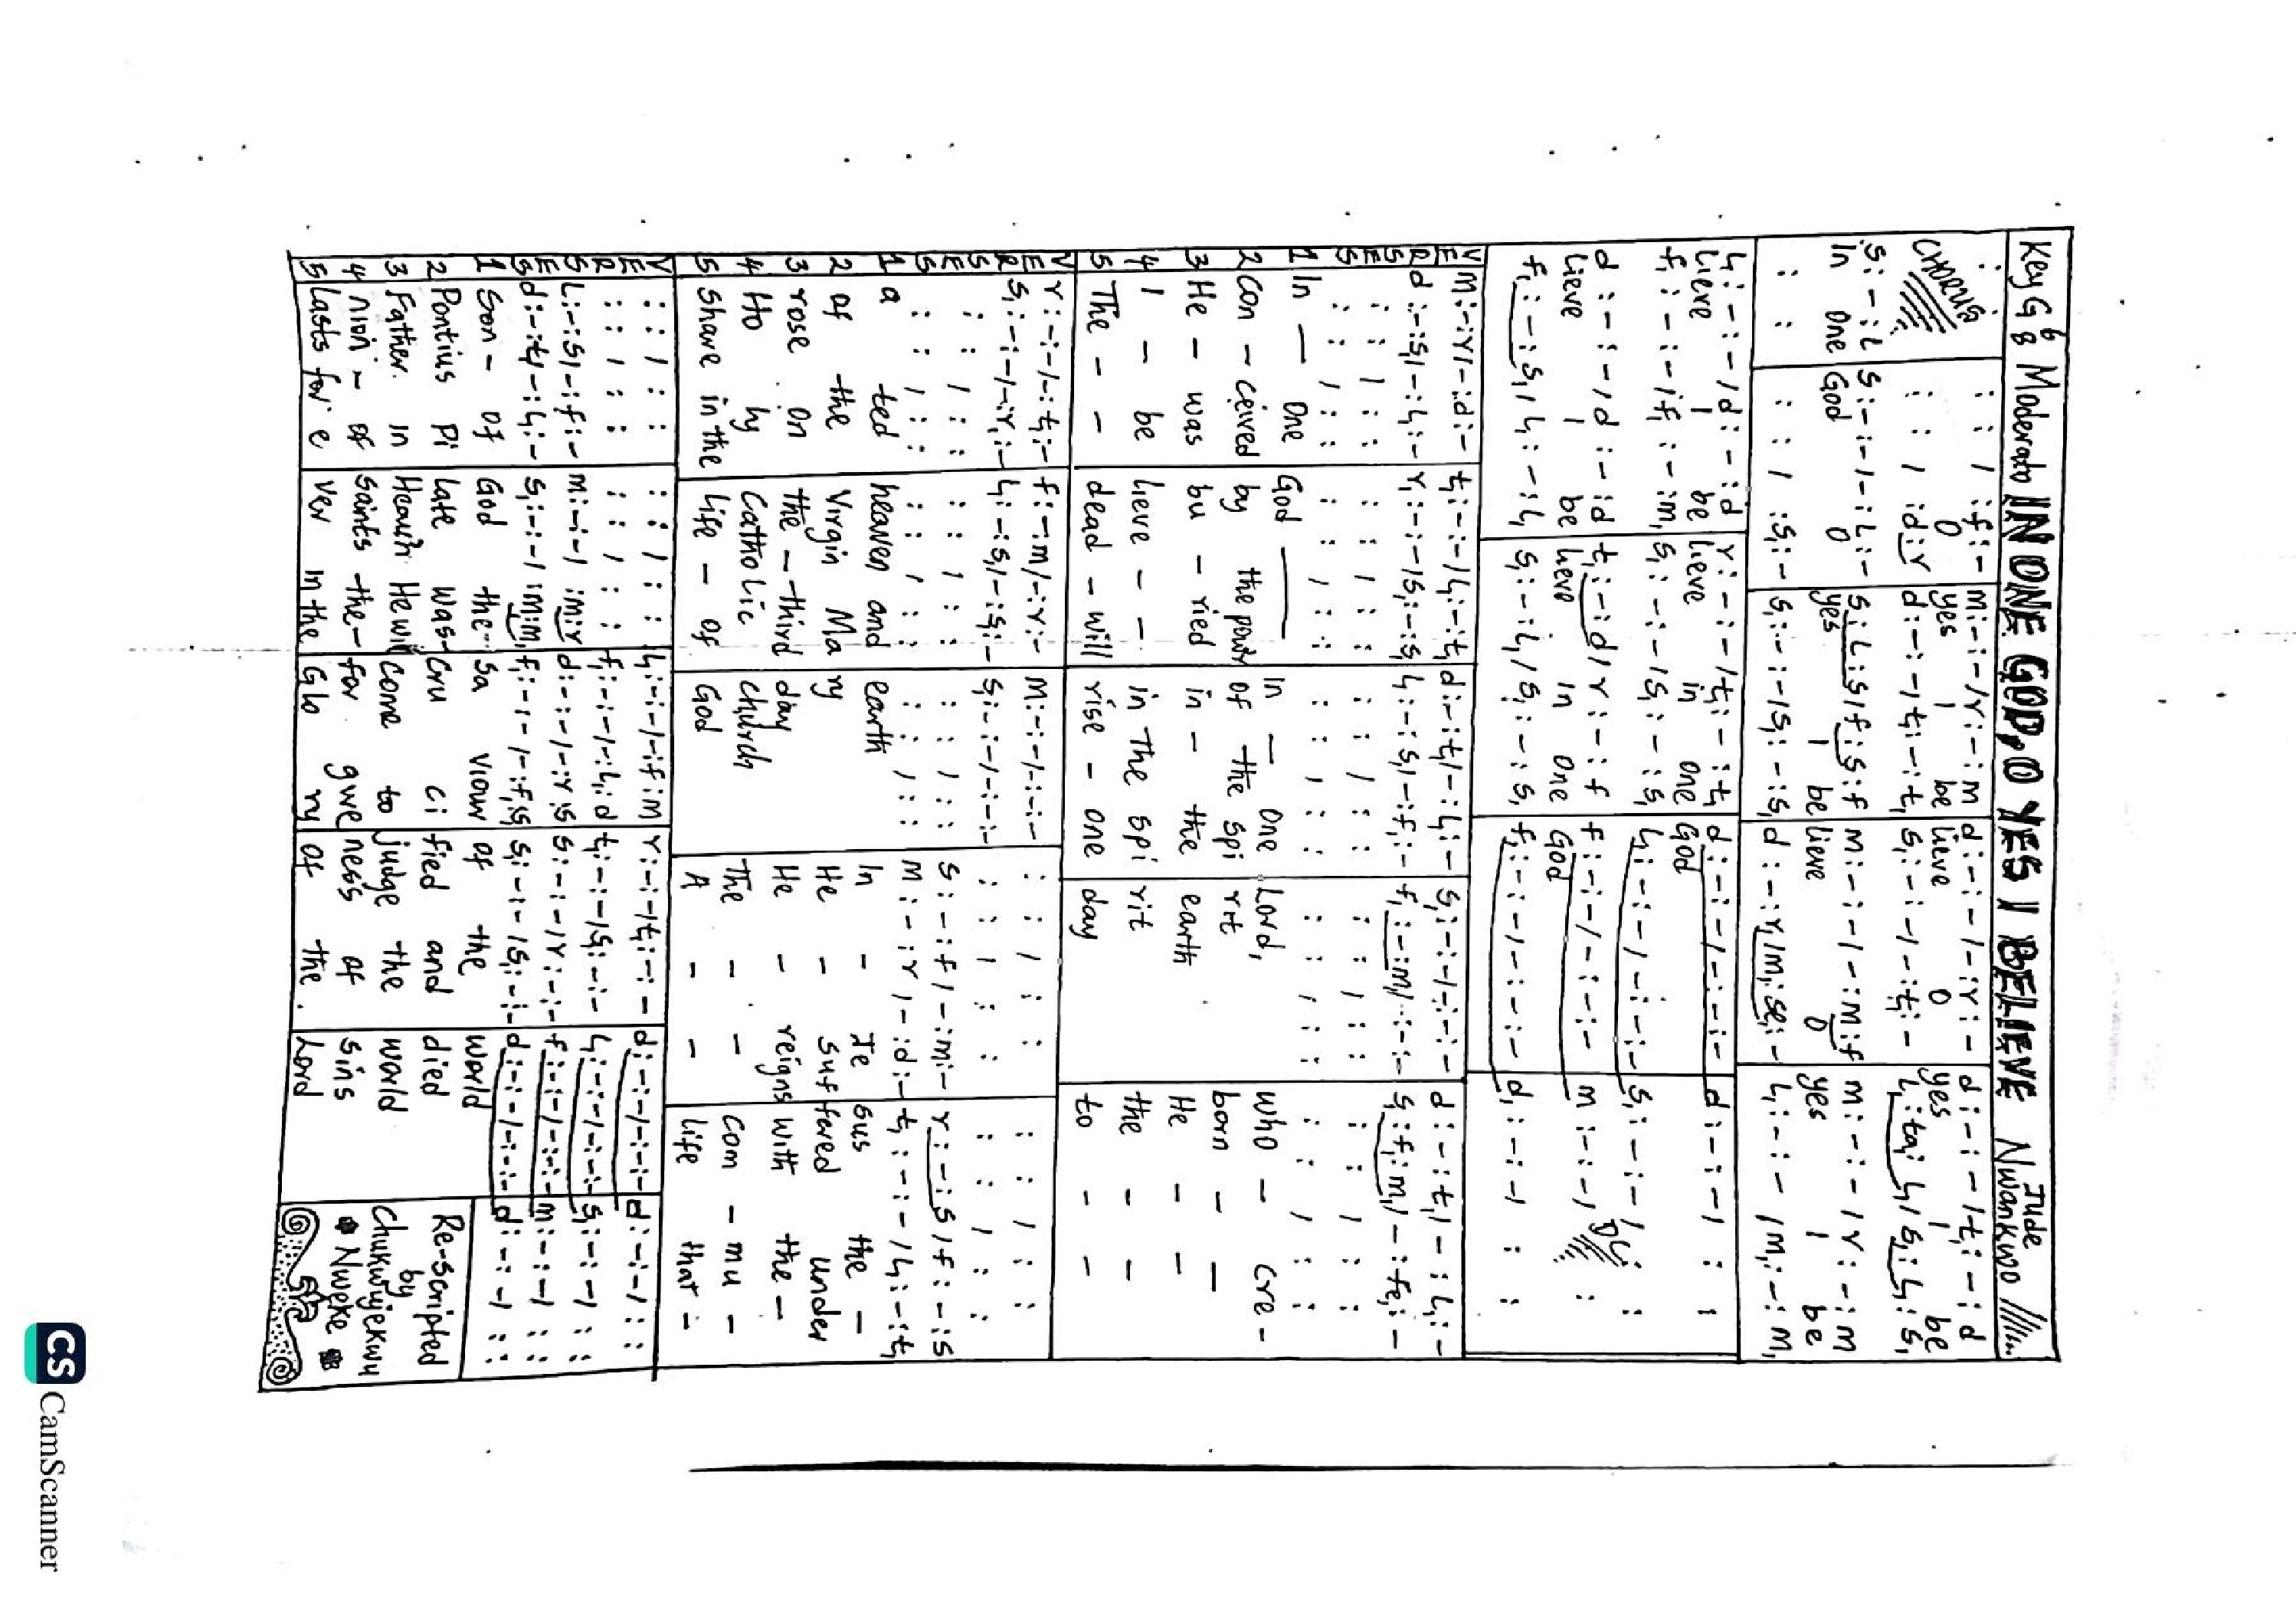 Key G 6/8 Moderato IN ONE GOD, O YES I BELIEVE Jude Nwankwo
: : / : f : - m : - : - / r : - : m d : - : - / - : r : - d : - : - / t, : - : d
O yes I be lieve O yes I be
CHORUS : : / : d : r d : - : - / t, : - : t, s, : - : - / - : t, : - l, : ta, : l, / s, : l, : s,
s : - : l s : - : - / - : l : - s : l : s / f : s : f m : - : - / - : m : f m : - : - / r : - : m
In One God O yes I be lieve O yes I be
: : : : / : s, : - s, : - : - / s, : - : s, d : - : r, / m, : se, : - l, : - : - / m, : - : m,
l, : - : - / d : - : d r : - : - / t, : - : t, d : - : - / - : - : - d : - : - / : :
lieve I be lieve in One God
f, : - : - / f, : - : m, s, : - : - / s, : - : s, l, : - : - / - : - : - s, : - : - / : :
d : - : - / d : - : d t, : - : d / r : - : f f : - : - / - : - : - m : - : - / : :
lieve I be lieve in One God
f, : - : s, / l, : - : l, s, : - : l, / s, : - : s, f, : - : - / - : - : - d, : - : - / : :
VERSES
m : - : r / - : d : - t, : - : - / l, : - : t, d : - : t, / - : l, : - s, : - : - / - : - : - d : - : t, / - : l, : -
d : - : s, / - : l, : - r, : - : - / s, : - : s, l, : - : s, / - : f, : - f, : - : m, / - : - : - s, : f, : m, / - : fe, : -
: : / : : : : / : : : : / : : : : / : : : : / : :
: : / : : : : / : : : : / : : : : / : : : : / : :
1 In - One God - In - One Lord, who - cre -
2 Con - ceived by the power of the Spi rit born - -
3 He - was bu - ried in - the earth He - -
4 I - be lieve - - in the Spi rit the - -
5 The - - dead - will rise - one day to - -
VERSES
r : - : - / - : t, : - f : - : m / - : r : - m : - : - / - : - : - : : / : : : : / : :
s, : - : - / - : r, : - l, : - : s, / - : s, : - s, : - : - / - : - : - s : - : f / - : m : - r : - : s / f : - : s
: : / : : : : / : : : : / : : : : / : : : : / : :
: : / : : : : / : : : : / : : m : - : r / - : d : - t, : - : - / l, : - : t,
1 a ted heaven and earth In - Je sus the -
2 of the Virgin Ma ry He - suf fered under
3 rose on the - third day He - reigns with the -
4 Ho ly Catholic Church The - - Com - mu -
5 share in the life - of God A - - life that -
VERSES
: : / : : : : / : : l, : - : - / - : f : m r : - : - / t, : - : - d : - : - / - : - : - d : - : - / : :
: : / : : : : / : : f, : - : - / - : l, : d t, : - : - / s, : - : - l, : - : - / - : - : - s, : - : - / : :
l : - : s / - : f : - m : - : - / : m : r d : - : - / - : r : s s : - : - / r : - : - f : - : - / - : - : - m : - : - / : :
d : - : t, / - : l, : - s, : - : - / : m, : m, f, : - : - / - : f, : s, s, : - : - / s, : - : - d : - : - / - : - : - d : - : - / : :
1 Son - of God the - Sa viour of the world
2 Pontius Pi late was - Cru ci fied and died
3 Father in Heaven He will come to judge the world
4 nion - of saints the - for give ness of sins
5 lasts for e ver in the Glo ry of the Lord
Re-scripted
by
Chukwujekwu
Nweke
CS CamScanner